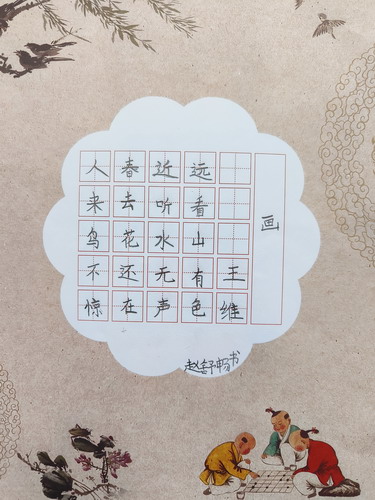 画
王维
远看山有色
近听水无声
春去花还在
人来鸟不惊
赵舒畅书